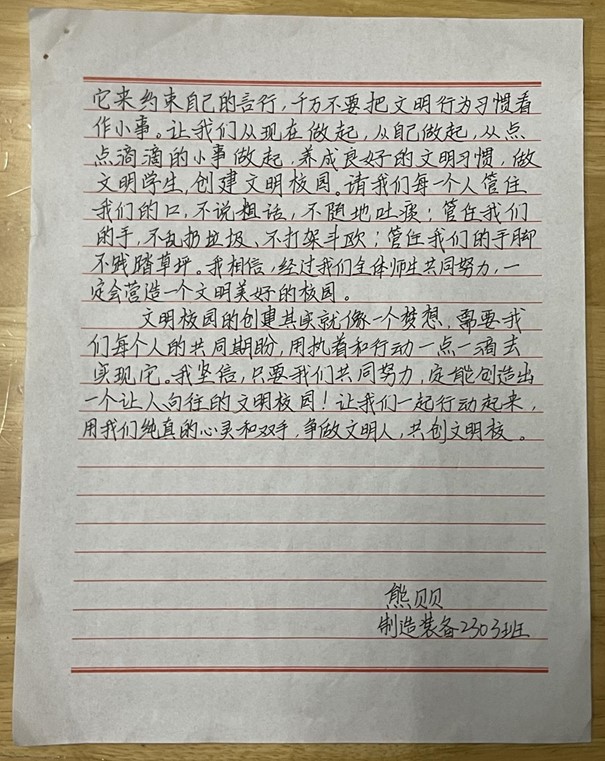 它来约束自己的言行，千万不要把文明行为习惯看
作小事。让我们从现在做起，从自己做起，从点
点滴滴的小事做起，养成良好的文明习惯，做
文明学生，创建文明校园。请我们每一个人管住
我们的口，不说粗话，不随地吐痰；管住我们
的手，不乱扔垃圾、不打架斗欧；管住我们的手脚
不践踏草坪。我相信，经过我们全体师生共同努力，一
定会营造一个文明美好的校园。
文明校园的创建其实就像一个梦想，需要我
们每个人的共同期盼，用执着和行动一点一滴去
实现它。我坚信，只要我们共同努力，定能创造出
一个让人向往的文明校园！让我们一起行动起来，
用我们纯真的心灵和双手，争做文明人，共创文明校。
熊贝贝
制造装备2303班